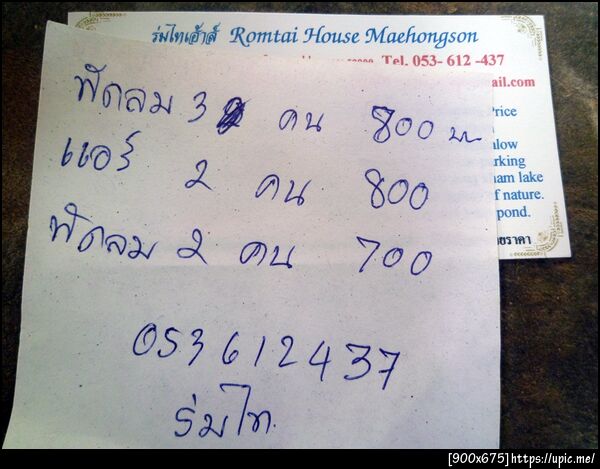 ร่มไทเฮ้าส์ Romtai House Maehongson
Tel. 053- 612 -437
ail.com
Price
alow
parking
ham lake
f nature.
pond.
ยราคา
พัดลม 3 คน 800 บ
แอร์ 2 คน 800
พัดลม 2 คน 700
053612437
ร่มไท
[900x675]https://upic.me/